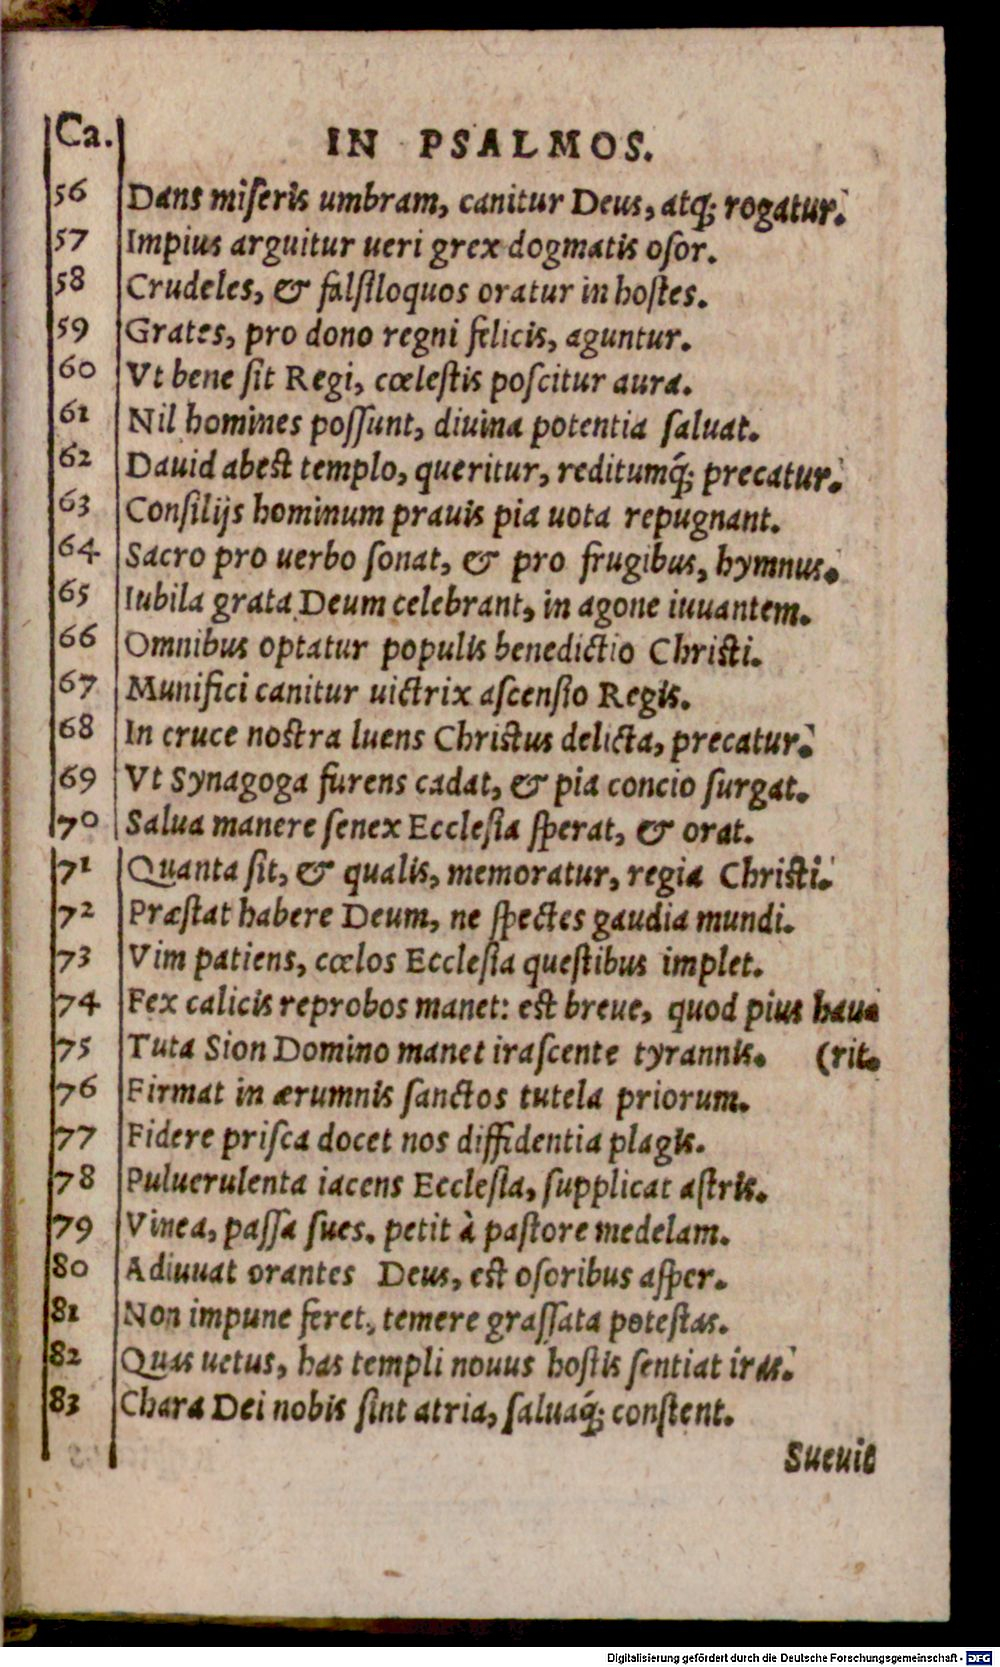 Ca. IN PSALMOS.
56 Dans miſeris umbram, canitur Deus, atq; rogatur.
57 Impius arguitur ueri grex dogmatis oſor.
58 Crudeles, & falſiloquos oratur in hoſtes.
59 Grates, pro dono regni felicis, aguntur.
60 Vt bene ſit Regi, cœleſtis poſcitur aura.
61 Nil homines poſſunt, diuina potentia ſaluat.
62 Dauid abest templo, queritur, reditumq́; precatur.
63 Conſilijs hominum prauis pia uota repugnant.
64 Sacro pro uerbo ſonat, & pro frugibus, hymnus.
65 Iubila grata Deum celebrant, in agone iuuantem.
66 Omnibus optatur populis benedictio Chriſti.
67 Munifici canitur uictrix aſcenſio Regis.
68 In cruce nostra luens Christus delicta, precatur.
69 Vt Synagoga furens cadat, & pia concio ſurgat.
70 Salua manere ſenex Eccleſia ſperat, & orat.
71 Quanta ſit, & qualis, memoratur, regia Chriſti.
72 Præſtat habere Deum, ne ſpectes gaudia mundi.
73 Vim patiens, cœlos Eccleſia queſtibus implet.
74 Fex calicis reprobos manet: est breue, quod pius hau
75 Tuta Sion Domino manet iraſcente tyrannis. (rit.
76 Firmat in ærumnis ſanctos tutela priorum.
77 Fidere priſca docet nos diffidentia plagis.
78 Puluerulenta iacens Eccleſia, ſupplicat aſtris.
79 Vinea, paſſa ſues. petit à paſtore medelam.
80 Adiuuat orantes Deus, est oſoribus aſper.
81 Non impune feret, temere graſſata poteſtas.
82 Quas uetus, has templi nouus hoſtis ſentiat iras.
83 Chara Dei nobis ſint atria, ſaluaq́; conſtent.
Sueuit
Digitalisierung gefördert durch die Deutsche Forschungsgemeinschaft - DFG